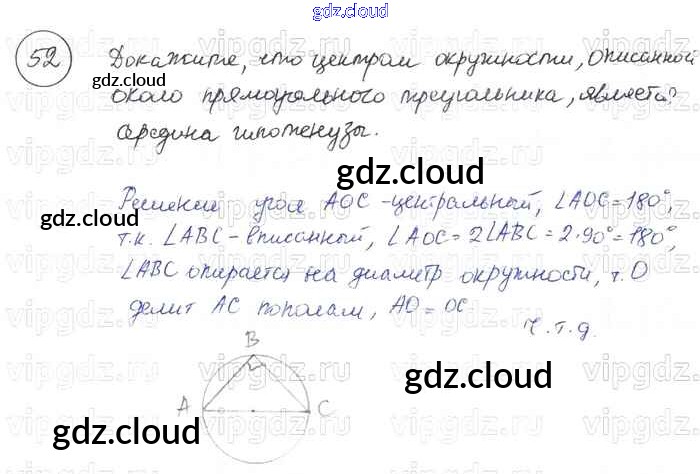 gdz.cloud
52 Докажите, что центром окружности, описанной
около прямоугольного треугольника, является
середина гипотенузы.
gdz.cloud
gdz.cloud
Решение угол AOC - центральный, ∠AOC = 180°,
gdz.cloud
т.к. ∠ABC - вписанный, ∠AOC = 2∠ABC = 2·90° = 180°,
∠ABC опирается на диаметр окружности, т. O
делит AC пополам, AO = OC
ч.т.д.
B
A C
gdz.cloud
gdz.cloud
vipgdz.ru